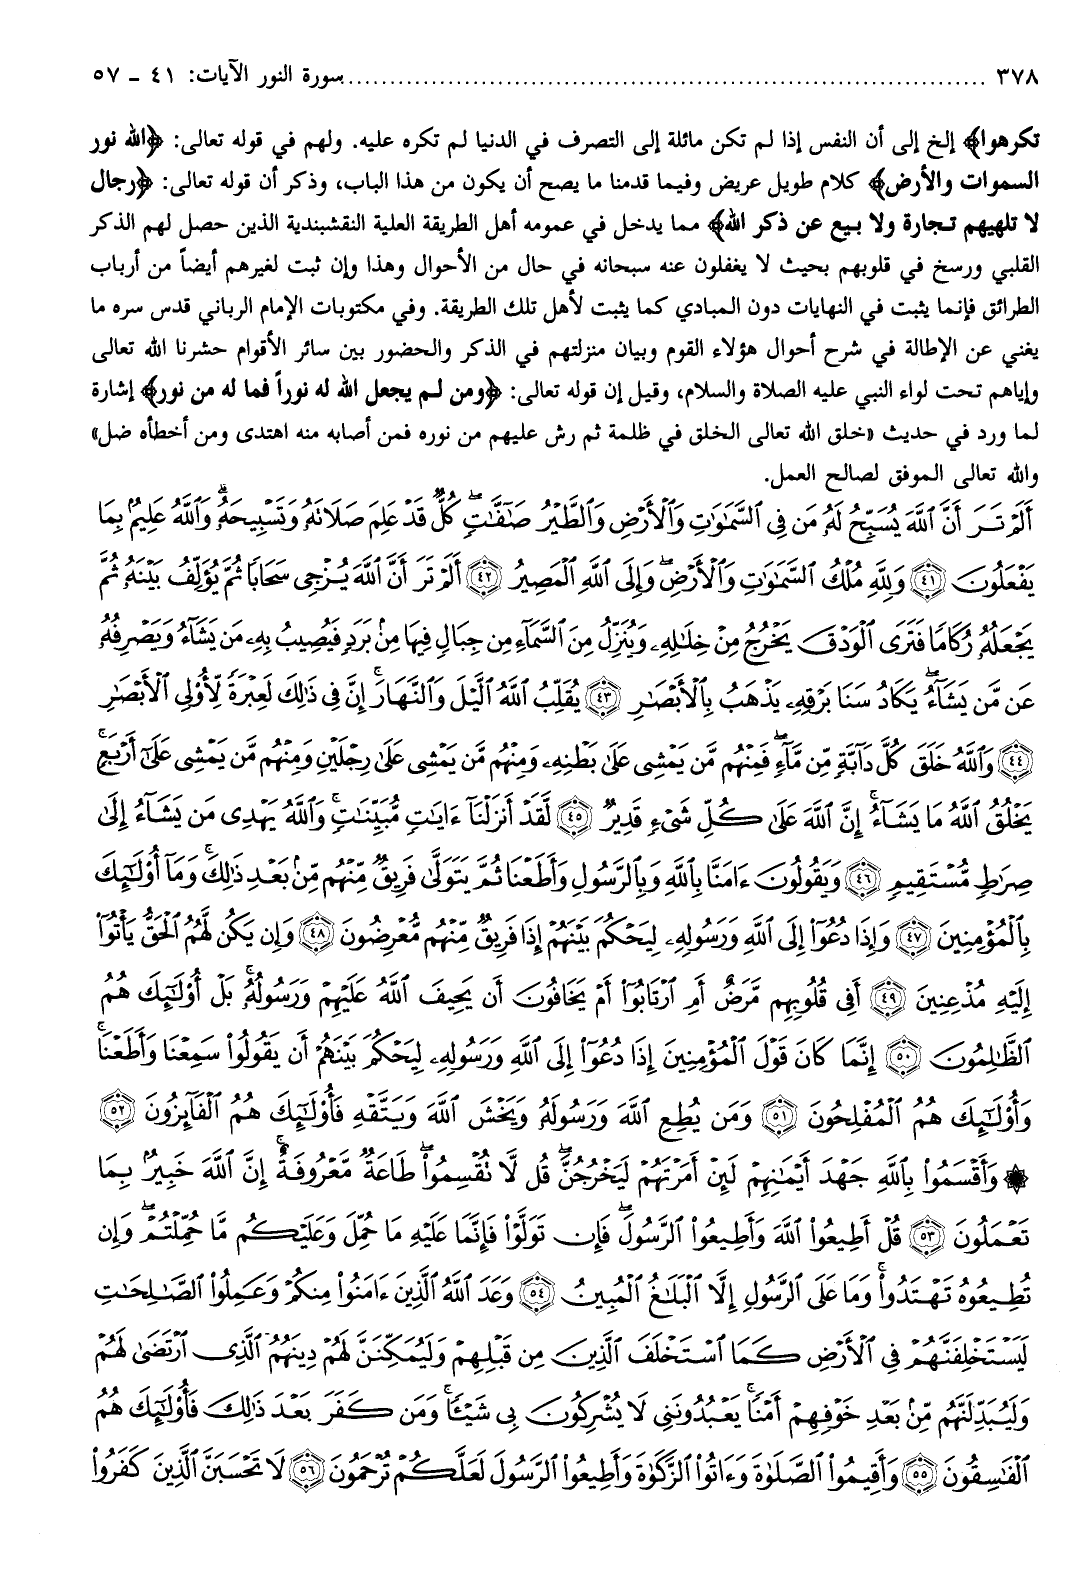 ٣٧٨ ........................................................ سورة النور الآيات: ٤١ - ٥٧
تكرهوا﴾ إلخ إلى أن النفس إذا لم تكن مائلة إلى التصرف في الدنيا لم تكره عليه. ولهم في قوله تعالى: ﴿الله نور
السموات والأرض﴾ كلام طويل عريض وفيما قدمنا ما يصح أن يكون من هذا الباب، وذكر أن قوله تعالى: ﴿رجال
لا تلهيهم تجارة ولا بيع عن ذكر الله﴾ مما يدخل في عمومه أهل الطريقة العلية النقشبندية الذين حصل لهم الذكر
القلبي ورسخ في قلوبهم بحيث لا يغفلون عنه سبحانه في حال من الأحوال وهذا وإن ثبت لغيرهم أيضاً من أرباب
الطرائق فإنما يثبت في النهايات دون المبادي كما يثبت لأهل تلك الطريقة. وفي مكتوبات الإمام الرباني قدس سره ما
يغني عن الإطالة في شرح أحوال هؤلاء القوم وبيان منزلتهم في الذكر والحضور بين سائر الأقوام حشرنا الله تعالى
وإياهم تحت لواء النبي عليه الصلاة والسلام، وقيل إن قوله تعالى: ﴿ومن لم يجعل الله له نوراً فما له من نور﴾ إشارة
لما ورد في حديث «خلق الله تعالى الخلق في ظلمة ثم رش عليهم من نوره فمن أصابه منه اهتدى ومن أخطأه ضل»
والله تعالى الموفق لصالح العمل.
أَلَمْ تَرَ أَنَّ ٱللَّهَ يُسَبِّحُ لَهُۥ مَن فِى ٱلسَّمَٰوَٰتِ وَٱلْأَرْضِ وَٱلطَّيْرُ صَٰٓفَّٰتٍۖ كُلٌّ قَدْ عَلِمَ صَلَاتَهُۥ وَتَسْبِيحَهُۥۗ وَٱللَّهُ عَلِيمٌۢ بِمَا
يَفْعَلُونَ ﴿٤١﴾ وَلِلَّهِ مُلْكُ ٱلسَّمَٰوَٰتِ وَٱلْأَرْضِۖ وَإِلَى ٱللَّهِ ٱلْمَصِيرُ ﴿٤٢﴾ أَلَمْ تَرَ أَنَّ ٱللَّهَ يُزْجِى سَحَابًا ثُمَّ يُؤَلِّفُ بَيْنَهُۥ ثُمَّ
يَجْعَلُهُۥ رُكَامًا فَتَرَى ٱلْوَدْقَ يَخْرُجُ مِنْ خِلَٰلِهِۦ وَيُنَزِّلُ مِنَ ٱلسَّمَآءِ مِن جِبَالٍ فِيهَا مِنۢ بَرَدٍ فَيُصِيبُ بِهِۦ مَن يَشَآءُ وَيَصْرِفُهُۥ
عَن مَّن يَشَآءُۖ يَكَادُ سَنَا بَرْقِهِۦ يَذْهَبُ بِٱلْأَبْصَٰرِ ﴿٤٣﴾ يُقَلِّبُ ٱللَّهُ ٱلَّيْلَ وَٱلنَّهَارَۚ إِنَّ فِى ذَٰلِكَ لَعِبْرَةً لِّأُو۟لِى ٱلْأَبْصَٰرِ
﴿٤٤﴾ وَٱللَّهُ خَلَقَ كُلَّ دَآبَّةٍ مِّن مَّآءٍۖ فَمِنْهُم مَّن يَمْشِى عَلَىٰ بَطْنِهِۦ وَمِنْهُم مَّن يَمْشِى عَلَىٰ رِجْلَيْنِ وَمِنْهُم مَّن يَمْشِى عَلَىٰٓ أَرْبَعٍۚ
يَخْلُقُ ٱللَّهُ مَا يَشَآءُۚ إِنَّ ٱللَّهَ عَلَىٰ كُلِّ شَىْءٍ قَدِيرٌ ﴿٤٥﴾ لَّقَدْ أَنزَلْنَآ ءَايَٰتٍ مُّبَيِّنَٰتٍۚ وَٱللَّهُ يَهْدِى مَن يَشَآءُ إِلَىٰ
صِرَٰطٍ مُّسْتَقِيمٍ ﴿٤٦﴾ وَيَقُولُونَ ءَامَنَّا بِٱللَّهِ وَبِٱلرَّسُولِ وَأَطَعْنَا ثُمَّ يَتَوَلَّىٰ فَرِيقٌ مِّنْهُم مِّنۢ بَعْدِ ذَٰلِكَۚ وَمَآ أُو۟لَٰٓئِكَ
بِٱلْمُؤْمِنِينَ ﴿٤٧﴾ وَإِذَا دُعُوٓا۟ إِلَى ٱللَّهِ وَرَسُولِهِۦ لِيَحْكُمَ بَيْنَهُمْ إِذَا فَرِيقٌ مِّنْهُم مُّعْرِضُونَ ﴿٤٨﴾ وَإِن يَكُن لَّهُمُ ٱلْحَقُّ يَأْتُوٓا۟
إِلَيْهِ مُذْعِنِينَ ﴿٤٩﴾ أَفِى قُلُوبِهِم مَّرَضٌ أَمِ ٱرْتَابُوٓا۟ أَمْ يَخَافُونَ أَن يَحِيفَ ٱللَّهُ عَلَيْهِمْ وَرَسُولُهُۥۚ بَلْ أُو۟لَٰٓئِكَ هُمُ
ٱلظَّٰلِمُونَ ﴿٥٠﴾ إِنَّمَا كَانَ قَوْلَ ٱلْمُؤْمِنِينَ إِذَا دُعُوٓا۟ إِلَى ٱللَّهِ وَرَسُولِهِۦ لِيَحْكُمَ بَيْنَهُمْ أَن يَقُولُوا۟ سَمِعْنَا وَأَطَعْنَاۚ
وَأُو۟لَٰٓئِكَ هُمُ ٱلْمُفْلِحُونَ ﴿٥١﴾ وَمَن يُطِعِ ٱللَّهَ وَرَسُولَهُۥ وَيَخْشَ ٱللَّهَ وَيَتَّقْهِ فَأُو۟لَٰٓئِكَ هُمُ ٱلْفَآئِزُونَ ﴿٥٢﴾
۞ وَأَقْسَمُوا۟ بِٱللَّهِ جَهْدَ أَيْمَٰنِهِمْ لَئِنْ أَمَرْتَهُمْ لَيَخْرُجُنَّۖ قُل لَّا تُقْسِمُوا۟ۖ طَاعَةٌ مَّعْرُوفَةٌۚ إِنَّ ٱللَّهَ خَبِيرٌۢ بِمَا
تَعْمَلُونَ ﴿٥٣﴾ قُلْ أَطِيعُوا۟ ٱللَّهَ وَأَطِيعُوا۟ ٱلرَّسُولَۖ فَإِن تَوَلَّوْا۟ فَإِنَّمَا عَلَيْهِ مَا حُمِّلَ وَعَلَيْكُم مَّا حُمِّلْتُمْۖ وَإِن
تُطِيعُوهُ تَهْتَدُوا۟ۚ وَمَا عَلَى ٱلرَّسُولِ إِلَّا ٱلْبَلَٰغُ ٱلْمُبِينُ ﴿٥٤﴾ وَعَدَ ٱللَّهُ ٱلَّذِينَ ءَامَنُوا۟ مِنكُمْ وَعَمِلُوا۟ ٱلصَّٰلِحَٰتِ
لَيَسْتَخْلِفَنَّهُمْ فِى ٱلْأَرْضِ كَمَا ٱسْتَخْلَفَ ٱلَّذِينَ مِن قَبْلِهِمْ وَلَيُمَكِّنَنَّ لَهُمْ دِينَهُمُ ٱلَّذِى ٱرْتَضَىٰ لَهُمْ
وَلَيُبَدِّلَنَّهُم مِّنۢ بَعْدِ خَوْفِهِمْ أَمْنًاۚ يَعْبُدُونَنِى لَا يُشْرِكُونَ بِى شَيْـًٔاۚ وَمَن كَفَرَ بَعْدَ ذَٰلِكَ فَأُو۟لَٰٓئِكَ هُمُ
ٱلْفَٰسِقُونَ ﴿٥٥﴾ وَأَقِيمُوا۟ ٱلصَّلَوٰةَ وَءَاتُوا۟ ٱلزَّكَوٰةَ وَأَطِيعُوا۟ ٱلرَّسُولَ لَعَلَّكُمْ تُرْحَمُونَ ﴿٥٦﴾ لَا تَحْسَبَنَّ ٱلَّذِينَ كَفَرُوا۟